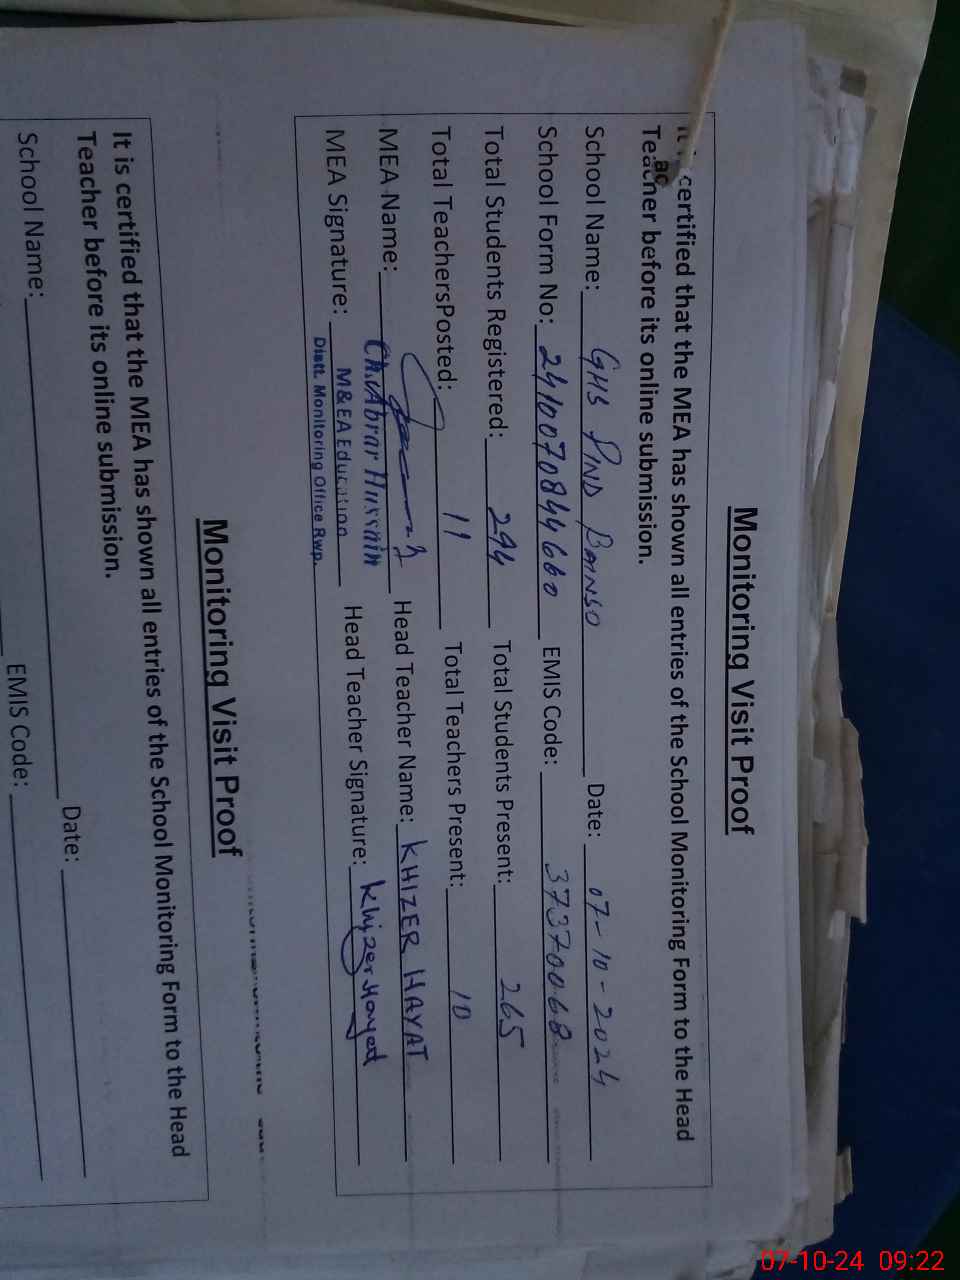 Monitoring Visit Proof
certified that the MEA has shown all entries of the School Monitoring Form to the Head
Teacher before its online submission.
School Name: GHS PIND BAINSO Date: 07-10-2024
School Form No: 2410070844660 EMIS Code: 37370068
Total Students Registered: 294 Total Students Present: 265
Total TeachersPosted: 11 Total Teachers Present: 10
MEA Name: Ch. Abrar Hussain Head Teacher Name: KHIZER HAYAT
MEA Signature: M&EA Education Head Teacher Signature: Khizer Hayat
Distt. Monitoring Office Rwp.
Monitoring Visit Proof
It is certified that the MEA has shown all entries of the School Monitoring Form to the Head
Teacher before its online submission.
School Name: Date:
EMIS Code:
07-10-24 09:22